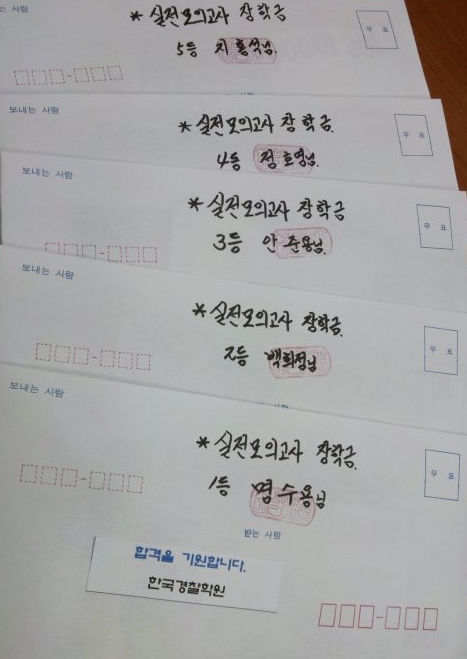 는 사람
*실전모의고사 장학금
우 표
5등 지홍석님
보내는 사람
*실전모의고사 장학금.
우 표
4등 정호영님
보내는 사람
*실전모의고사 장학금
우 표
3등 안준용님.
보내는 사람
*실전모의고사 장학금.
우 표
2등 백희정님
보내는 사람
*실전모의고사 장학금.
우 표
1등 명수용님
받는 사람
합격을 기원합니다.
한국경찰학원